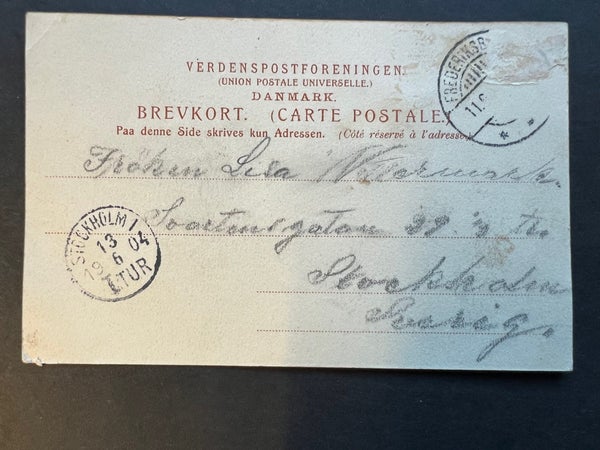 VERDENSPOSTFORENINGEN.
(UNION POSTALE UNIVERSELLE.)
DANMARK.
BREVKORT. (CARTE POSTALE.)
Paa denne Side skrives kun Adressen. (Côté réservé à l'adresse.)
FREDERIKSB
11.6
Fröken Lisa
Svartensgatan 29 2 tr.
Stockholm
Sverig.
STOCKHOLM 1
13
6 04
TUR